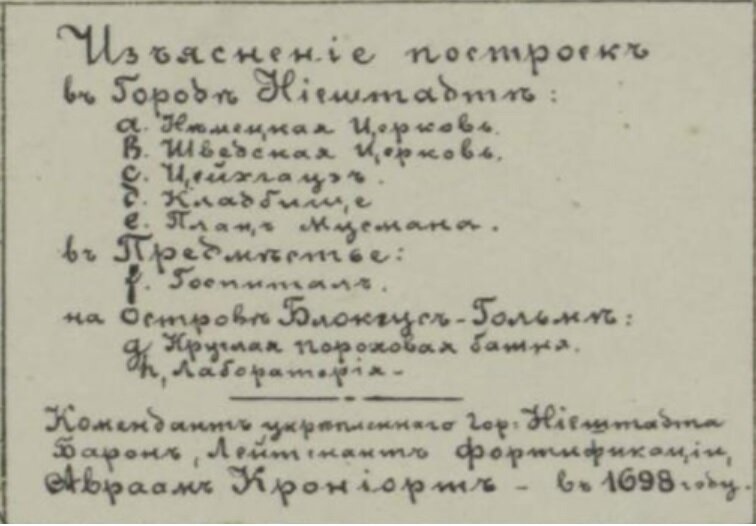 Изъясненіе построекъ
въ Городѣ Ніештадтѣ:
а. Нѣмецкая Церковь.
В. Шведская Церковь.
с. Цейхгаузъ.
d. Кладбище
е. Плацъ Мусмана.
въ Предмѣстье:
f. Госпиталь.
на Островѣ Блокгусъ-Гольмѣ:
g Круглая пороховая башня.
h, Лабораторія -
Комендантъ укрѣпленнаго гор: Ніештадта
Баронъ, Лейтенантъ Фортификаціи,
Авраамъ Кроніортъ - въ 1698 году.